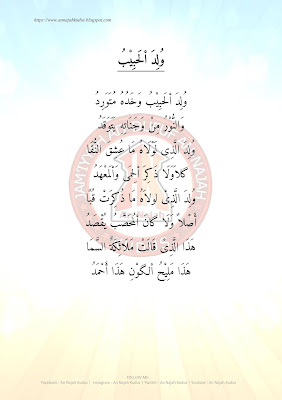 https://www.annajahkudus.blogspot.com
وُلِدَ اْلحَبِيْبُ
وُلِدَ اْلحَبِيْبُ وَخَدُهُ مُتَوَرِدُ
وَالنُّوْرُ مِنْ وَجَنَاتِهِ يَتَوَقَّدُ
وُلِدَ الَّذِى لَوْلَاهُ مَا عُشِقَ النَّقَا
كَلَّاوَلَا ذَكِرَ الْحِمَى وَالْمَعْهَدُ
وُلِدَ الَّذِى لَوْلَاهُ مَا ذُكِرَتْ قُبَا
أَصْلًا وَلَا كَانَ الْمُحَصَّبُ يُقْصَدُ
هَذَا الَّذِىْ قَالَتْ مَلَائِكَةُ السَّمَا
هَذَا مَلِيْحُ الْكَوْنِ هَذَا أَحْمَدُ
FOLLOW ME :
Facebook : An Najah Kudus | Instagram : An Najah Kudus | Twitter : An Najah Kudus | Youtube : An Najah Kudus